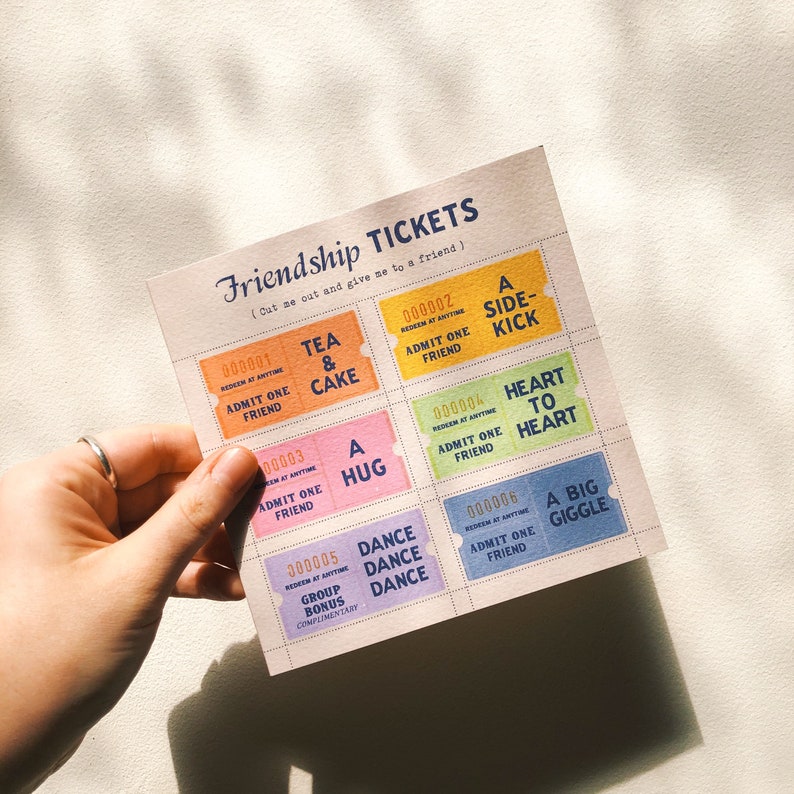 Friendship TICKETS
( Cut me out and give me to a friend )
000001
REDEEM AT ANYTIME
ADMIT ONE
FRIEND
TEA
&
CAKE
000002
REDEEM AT ANYTIME
ADMIT ONE
FRIEND
A
SIDE-
KICK
00003
REDEEM AT ANYTIME
ADMIT ONE
FRIEND
A
HUG
000004
REDEEM AT ANYTIME
ADMIT ONE
FRIEND
HEART
TO
HEART
000005
REDEEM AT ANYTIME
GROUP
BONUS
COMPLIMENTARY
DANCE
DANCE
DANCE
000006
REDEEM AT ANYTIME
ADMIT ONE
FRIEND
A BIG
GIGGLE